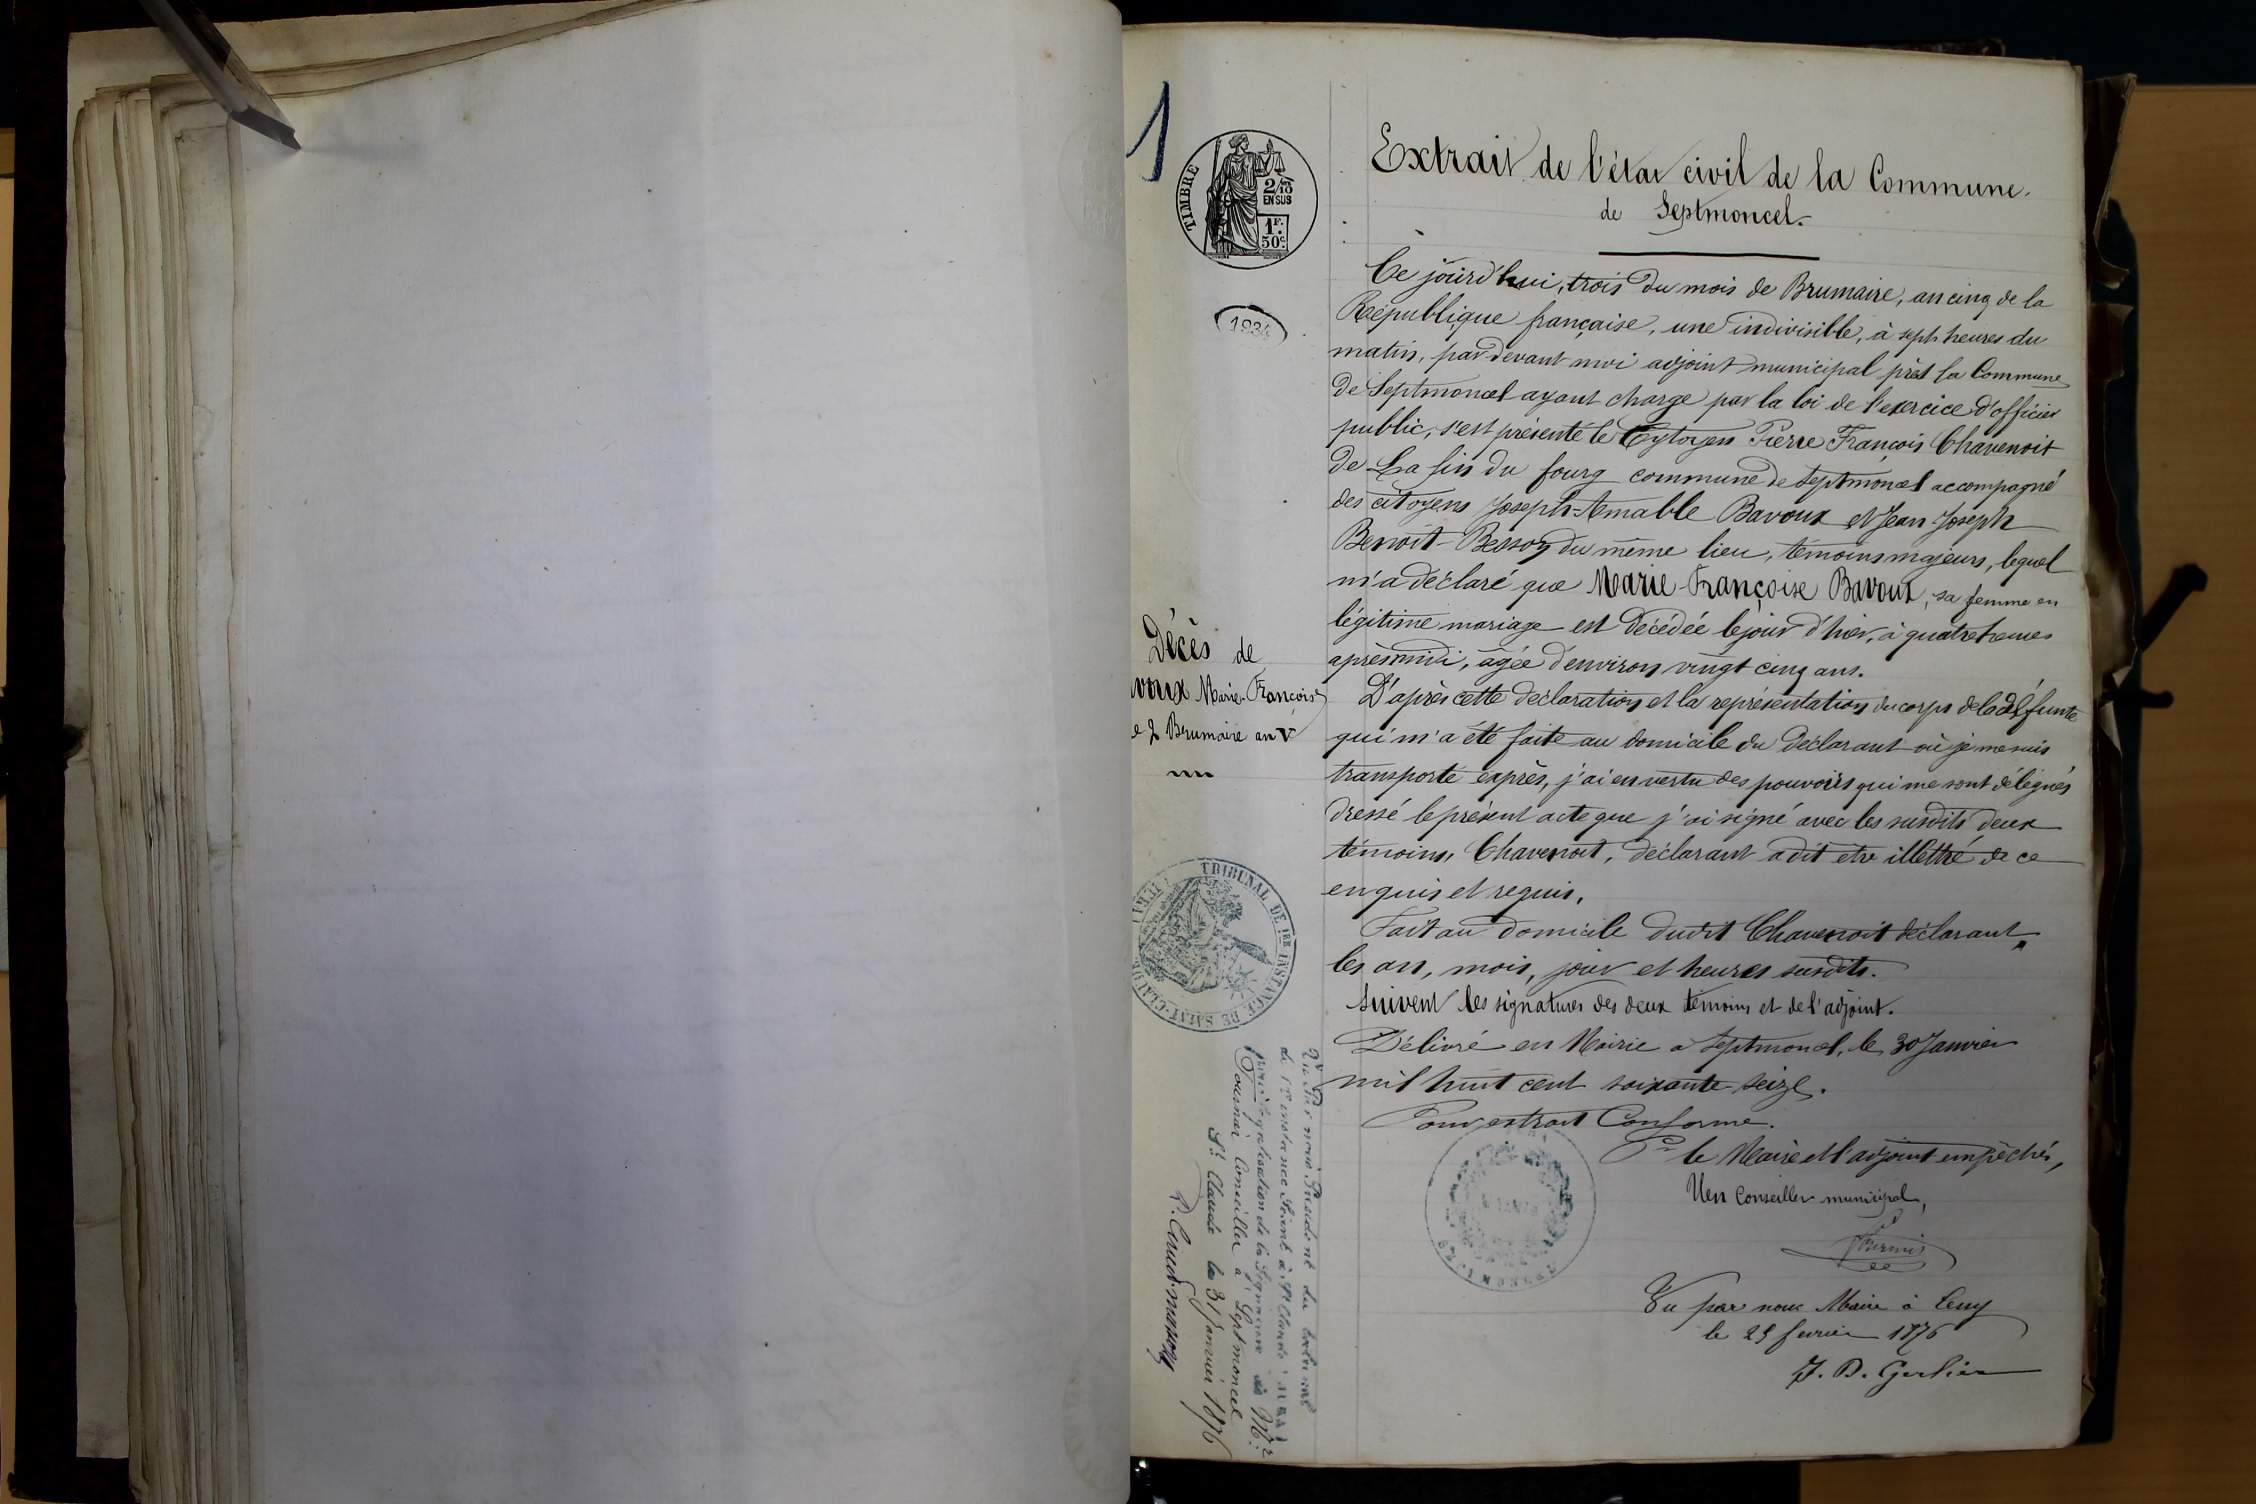 1
TIMBRE
2/10
EN SUS
1F.
50c.
1934
Extrait de l'état civil de la Commune
de Septmoncel.
Ce jourd'hui, trois du mois de Brumaire, an cinq de la
République française, une indivisible, à sept heures du
matin, par devant moi adjoint municipal près la Commune
de Septmoncel ayant charge par la loi de l'exercice d'officier
public, s'est présenté le Cytoyen Pierre François Chavenoit
de La fin du fourg commune de Septmoncel accompagné
des citoyens Joseph-Amable Bavoux et Jean Joseph
Benoit-Besson du même lieu, témoins majeurs, lequel
m'a déclaré que Marie-Françoise Bavoux, sa femme en
légitime mariage est décédée le jour d'hier, à quatre heures
après midi, âgée d'environ vingt cinq ans.
D'après cette déclaration et la représentation du corps de la défunte
qui m'a été faite au domicile du déclarant où je me suis
transporté exprès, j'ai en vertu des pouvoirs qui me sont délégués
dressé le présent acte que j'ai signé avec les susdits deux
témoins, Chavenoit, déclarant a dit etre illettré de ce
enquis et requis.
Fait au domicile dudit Chavenoit déclarant
les an, mois, jour et heures susdits.
Suivent les signatures des deux témoins et de l'adjoint.
Délivré en Mairie a Septmoncel, le 30 Janvier
mil huit cent soixante-seize.
Pour extrait Conforme.
Pr le Maire et l'adjoint empêchés,
Un Conseiller municipal,
Vu par nous Maire à
le 25 fevrier 1876
Décès de
voux Marie-François
e 2 Brumaire an V
TRIBUNAL DE 1RE INSTANCE DE SAINT-CLAUDE
Vu par nous Président du tribunal
de 1re instance séant à St Claude (Jura)
pour légalisation de la signature de Mr
Conseiller à Septmoncel
St Claude le 31 janvier 1876
SEPTMONCEL